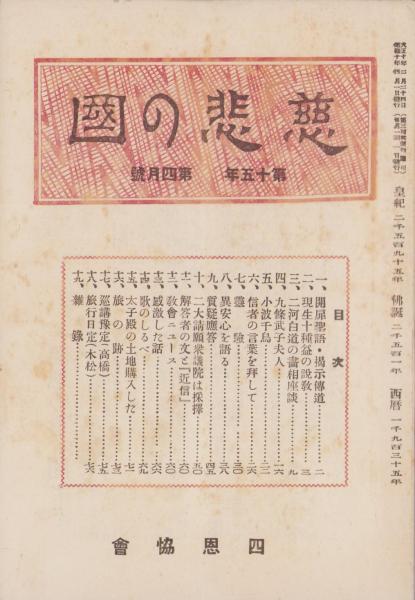 慈悲の國
第十五年 第四月號
皇紀 二千五百九十五年 佛誕 二千五百一年 西暦 一千九百三十五年
目次
一、開扉聖語・揭示傳道……二
二、現生十種益の説教……三
三、二河白道の畫相座談……九
四、九條武子夫人……一六
五、小波千鳥……二二
六、信者の言葉を拜して……二六
七、靈驗……三〇
八、異安心を語る……三八
九、質疑應答……四五
十、二大請願衆議院は採擇……五〇
十一、解答者の文と『近信』……六〇
十二、敎會ニュース……六〇
十三、感激した話……六四
十四、歌のしるべ……六九
十五、太子殿の土地購入した……七一
十六、旅の跡……七三
十七、巡講豫定（高橋）……七五
十八、旅行日定（木松）……七六
十九、雜錄
四恩協會